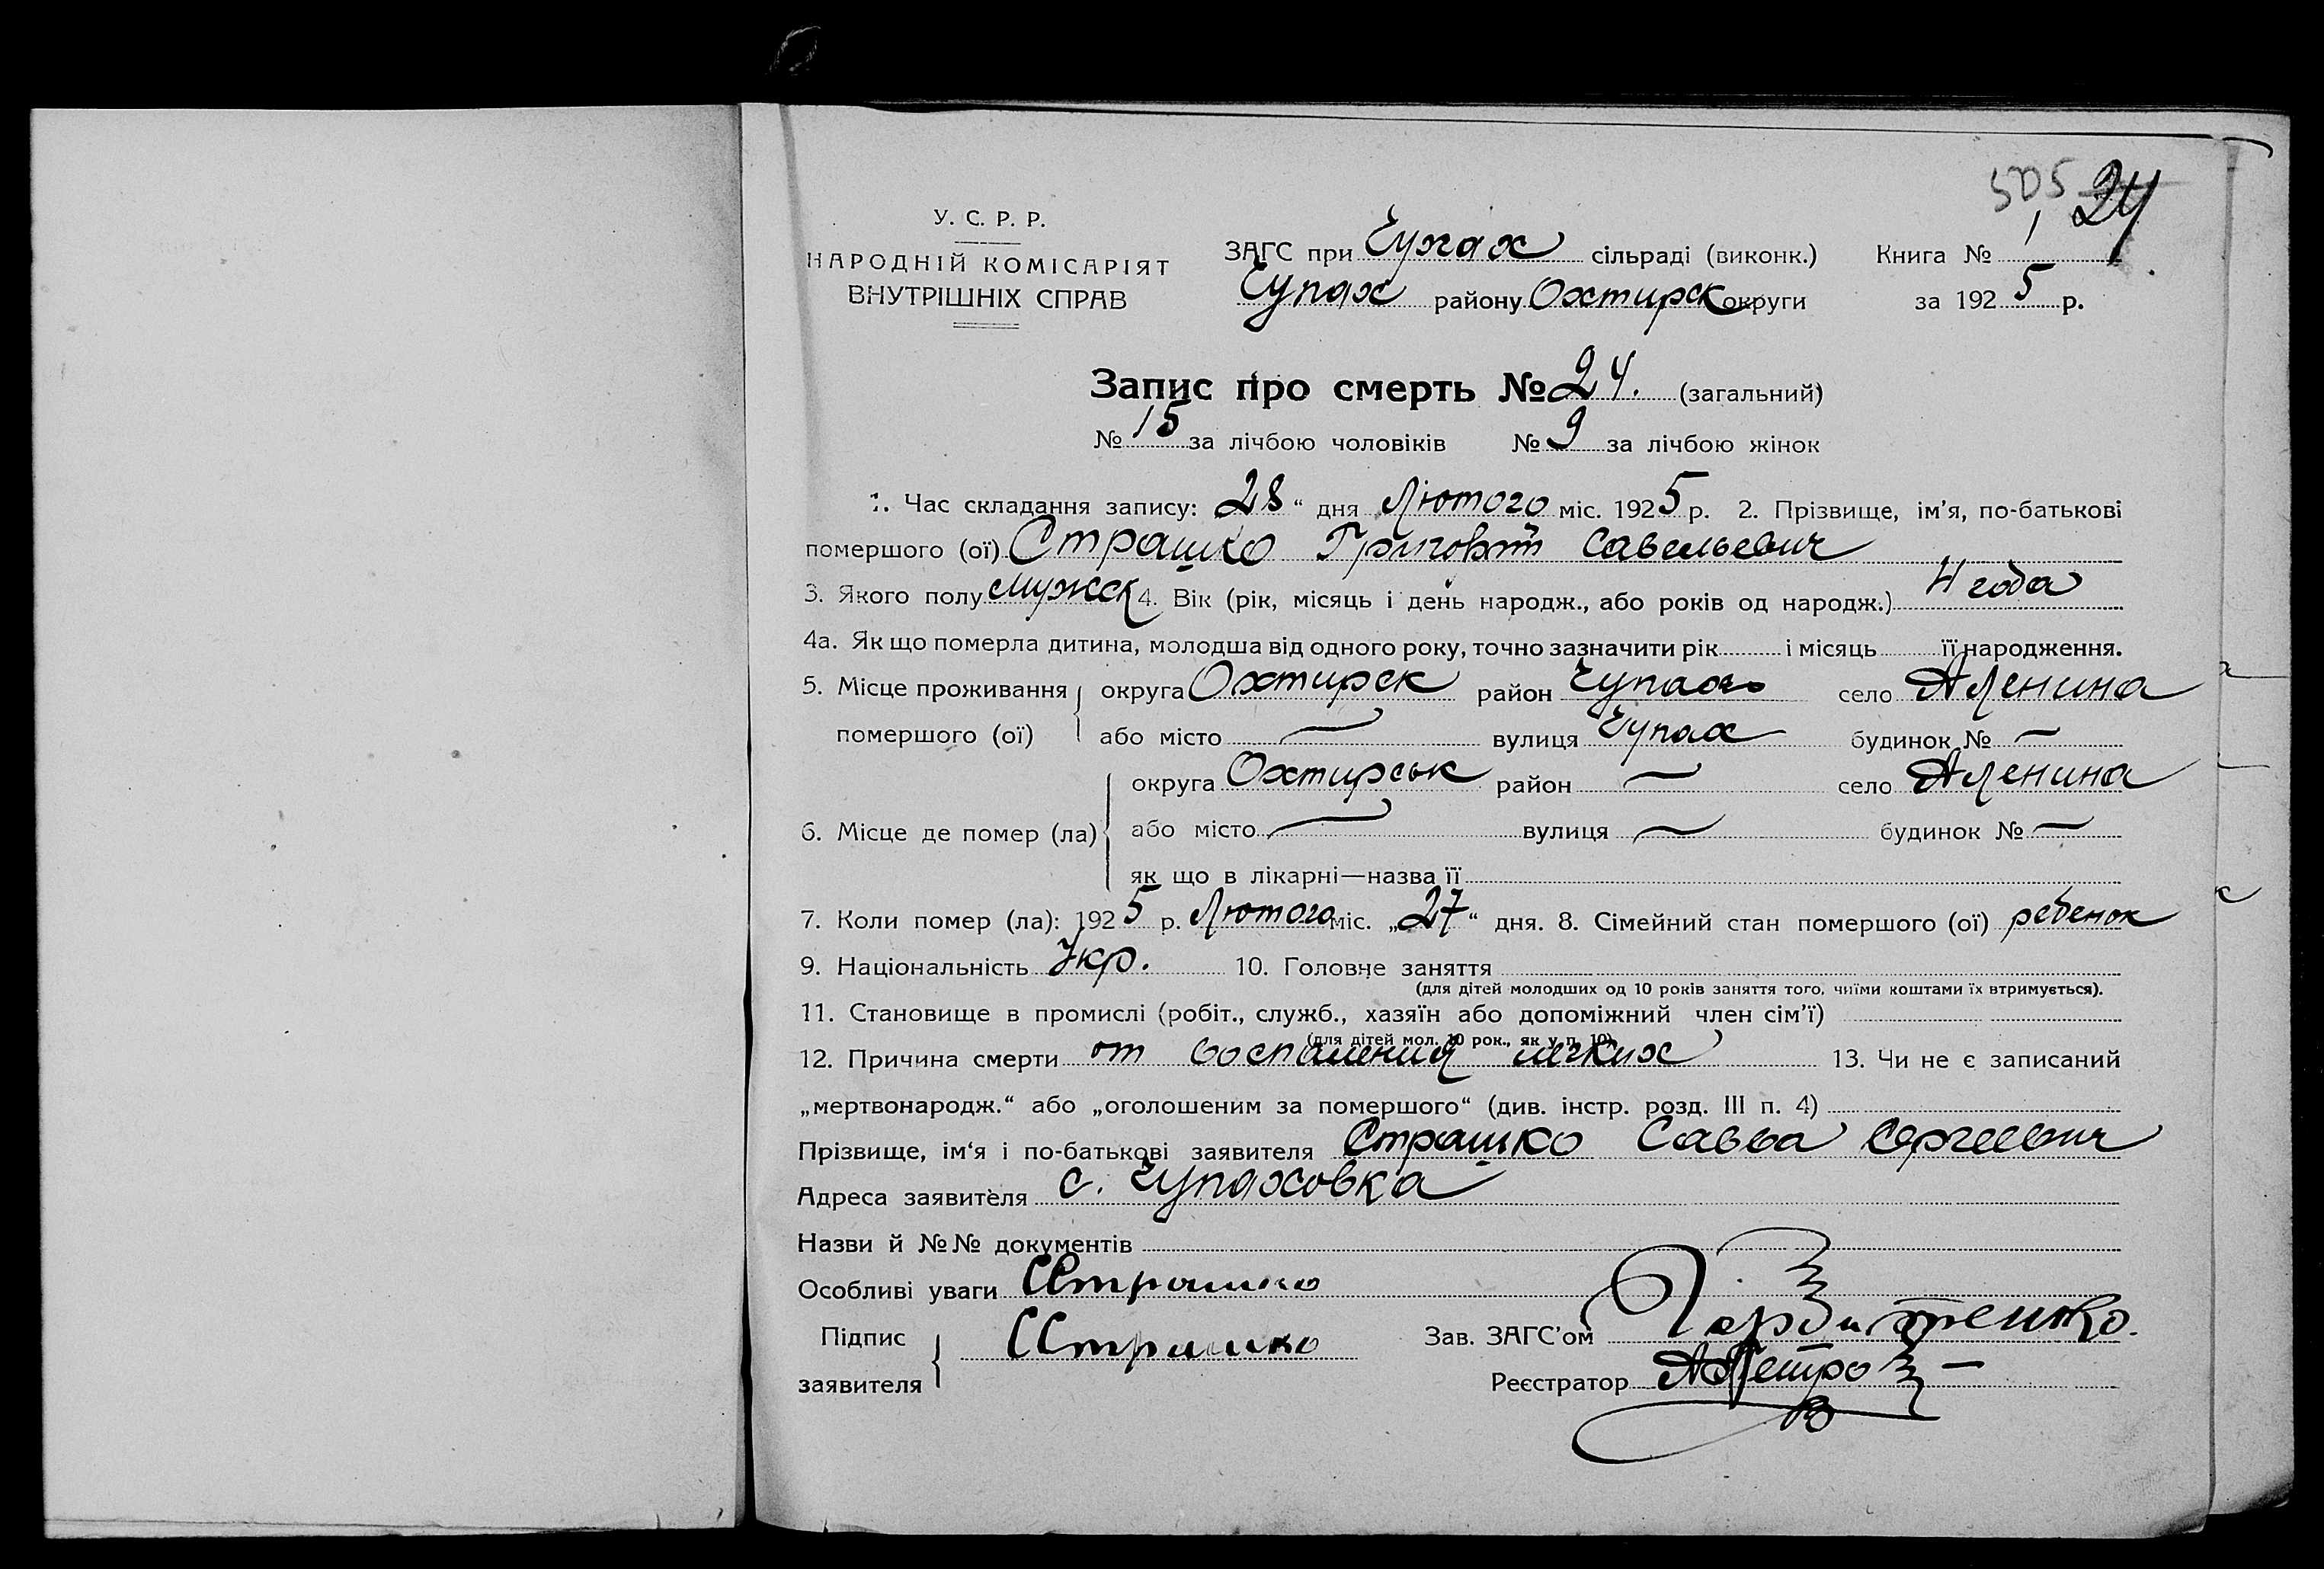 505 24
У. С. Р. Р.
НАРОДНІЙ КОМІСАРІЯТ
ВНУТРІШНІХ СПРАВ
ЗАГС при сільраді (виконк.) Книга № 1
Чупах району Охтирск округи за 1925 р.
Запис про смерть № 24. (загальний)
№ 15 за лічбою чоловіків № 9 за лічбою жінок
1. Час складання запису: 28 “ дня Лютого міс. 1925 р. 2. Прізвище, ім’я, по-батькові
помершого (ої) Страшко Савельевич
3. Якого полу мужск 4. Вік (рік, місяць і день народж., або років од народж.) 4 года
4а. Як що померла дитина, молодша від одного року, точно зазначити рік і місяць її народження.
5. Місце проживання округа Охтирск район село Аленина
помершого (ої) або місто — вулиця Чупах будинок № —
округа Охтирськ район — село Аленина
6. Місце де помер (ла) або місто — вулиця — будинок № —
як що в лікарні—назва її
7. Коли помер (ла): 1925 р. Лютого міс. „27“ дня. 8. Сімейний стан помершого (ої) ребенок
9. Національність Укр. 10. Головне заняття
(для дітей молодших од 10 років заняття того, чиїми коштами їх втримується).
11. Становище в промислі (робіт., служб., хазяїн або допоміжний член сім’ї)
(для дітей мол. 10 рок., як у п. 10)
12. Причина смерти от воспаления легких 13. Чи не є записаний
„мертвонародж.“ або „оголошеним за помершого“ (див. інстр. розд. III п. 4)
Прізвище, ім‘я і по-батькові заявителя Страшко Савва Сергеевич
Адреса заявителя с. Чупаховка
Назви й №№ документів
Особливі уваги ССтрашко
Підпис
заявителя ССтрашко
Зав. ЗАГС’ом
Реєстратор